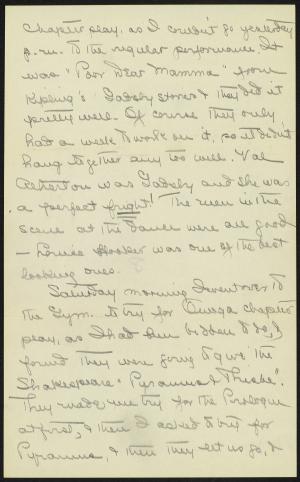 Chapter play, as I couldn't go yesterday
p.m. to the regular performance. It
was "Poor Dear Mamma" from
Kipling's Gadsby stories & they did it
pretty well. Of course they only
had a week to work on it, so it didn't
hang together any too well. Val
was Gadsby and she was
a perfect fright! The men in the
scene at the dance were all good
– Louise Hooker was one of the best
looking ones.
Saturday morning I went over to
the Gym. to try for Omega chapter
play, as I had been bidden to do, I
found they were going to give the
Shakespeare "Pyramus & Thisbe".
They made me try for the Prologue
at first, & then I asked to try for
Pyramus, & then they let us go, &